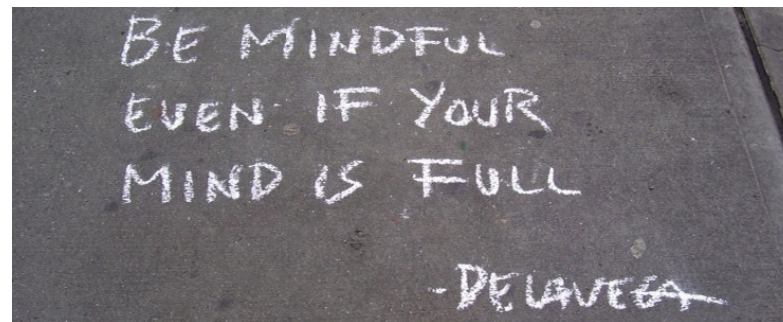 BE MINDFUL
EVEN IF YOUR
MIND IS FULL
-DE LAVEGA